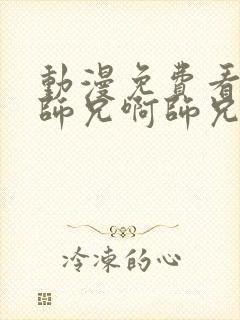 動漫免費看
師兄啊師兄
冷凍的心